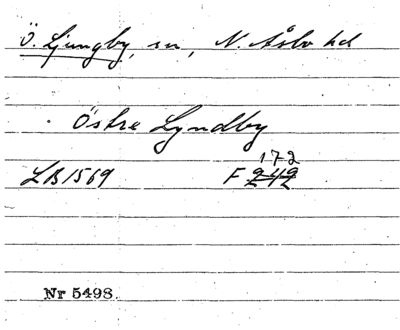 Ö. Ljungby, sn, N. Åsbo hd
Östre Lyndby
172
LB 1569 F 242
Nr 5498.